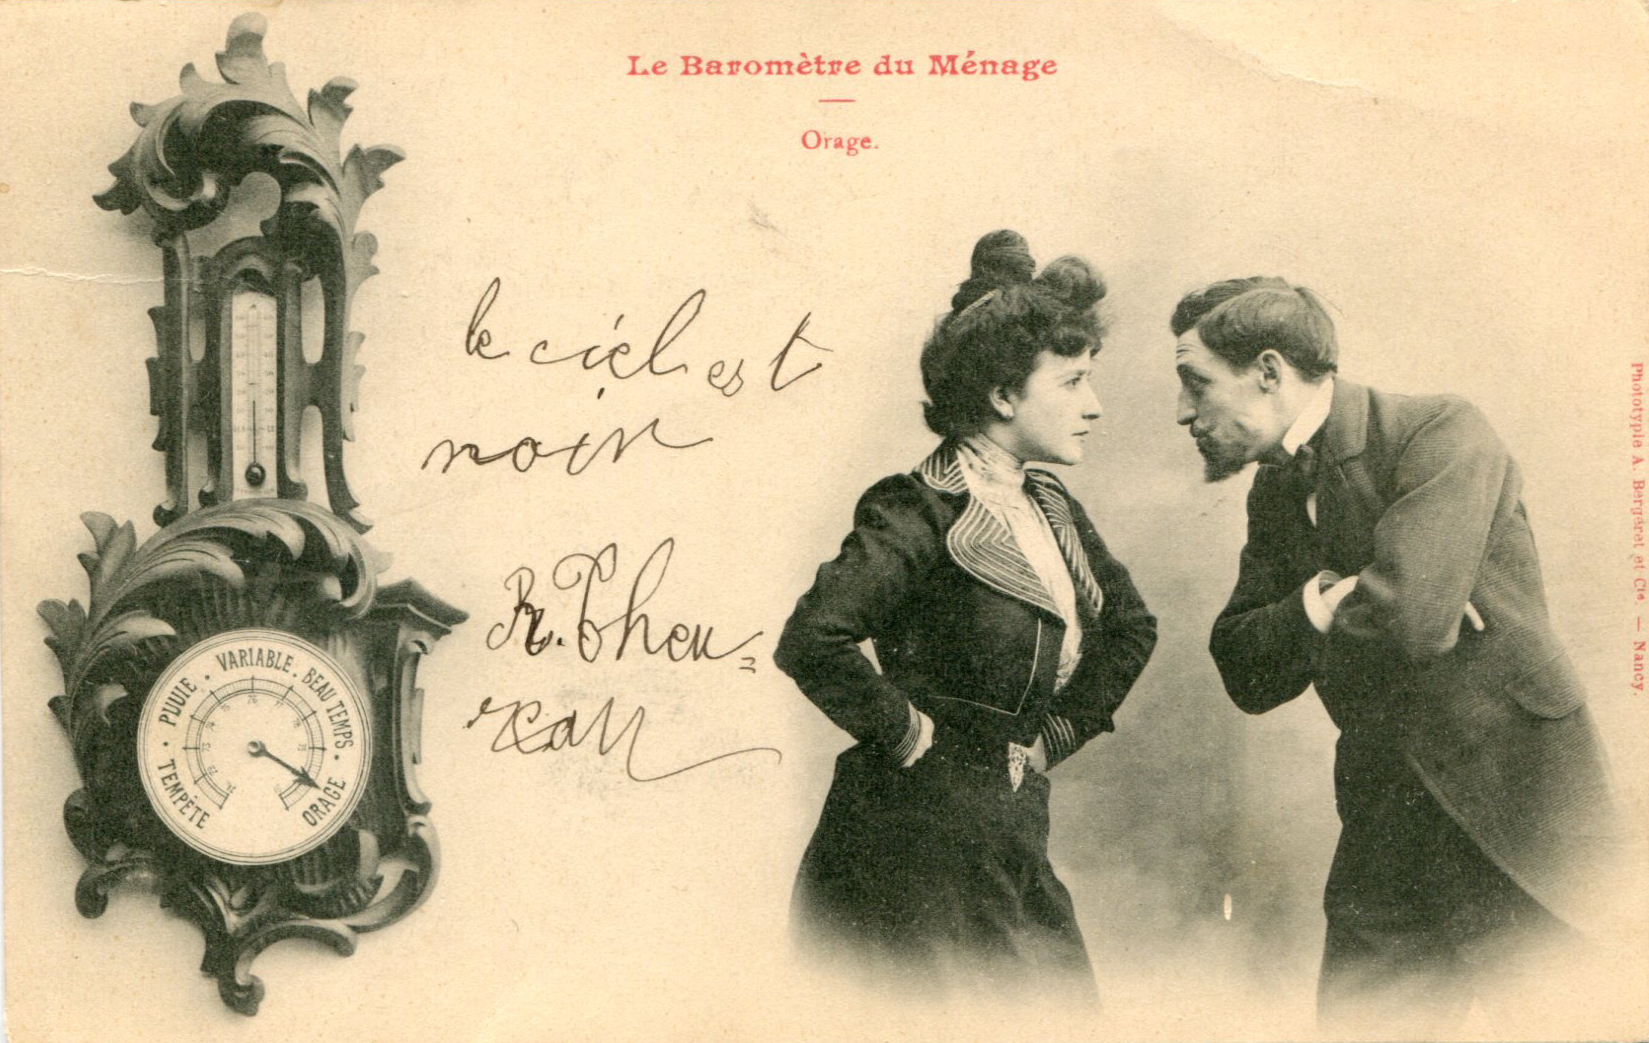 Le Baromètre du Ménage
Orage.
le ciel est
noir
R. Theu=
reau
TEMPÊTE · PUUIE · VARIABLE · BEAU TEMPS · ORAGE
Phototypie A. Bergeret et Cie. — Nancy.